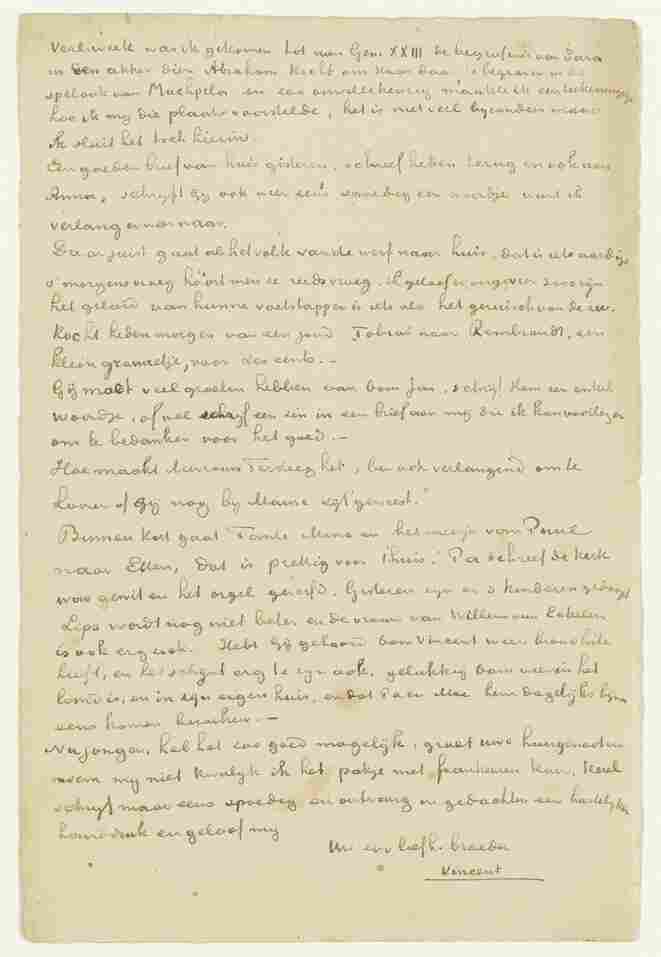 Verleden week was ik gekomen tot aan Gen. XXIII de begrafenis van Sara
in den akker dien Abraham kocht om haar daar te begraven in de
spelonk van Machpela en zoo onwillekeurig maakte ik een teekeningetje
hoe ik mij die plaats voorstelde, het is niet veel byzonders maar
ik sluit het toch hierin.
Een goeden brief van huis gisteren, schreef heden terug en ook aan
Anna, schryft Gy ook weer eens spoedig een woordje want ik
verlang er naar.
Daar juist gaat al het volk van de werf naar huis, dat is iets aardigs
's morgens vroeg hoort men ze reeds vroeg, ik geloof er ongeveer 3000 zyn
het geluid van hunne voetstappen is iets als het geruisch van de zee.
Kocht heden morgen van een jood Tobias naar Rembrandt, een
klein gravuretje, voor zes cents. –
Gij moet veel groeten hebben van oom Jan, schrijf Hem een enkel
woordje, of wel schryf een zin in een brief aan my die ik kan voorlezen
om te bedanken voor het goed. –
Hoe maakt Mevrouw Tersteeg het, ben ook verlangend om te
hooren of Gij nog by Mauve zijt geweest.
Binnen kort gaat Tante Mina en het meisje van Paul
naar Etten, dat is prettig voor thuis. Pa schreef de kerk
was gewit en het orgel geverfd. Gisteren zyn er 3 kinderen gedoopt
Lips wordt nog niet beter en de vrouw van Willem van Eekelen
is ook erg ziek. Hebt Gij gehoord Oom Vincent weer bronchite
heeft, en het schynt erg te zyn ook, gelukkig Oom weer in het
land is, en in zyn eigen huis, en dat Pa en Moe hem dagelyks byna
eens komen bezoeken. –
Nu jongen, heb het zoo goed mogelijk, groet uwe huisgenooten
neem my niet kwalyk ik het pakje niet frankeeren kan, Kerel
schryf maar eens spoedig en ontvang in gedachten een hartelyken
handdruk en geloof my
Uw zoo liefh. broeder
Vincent